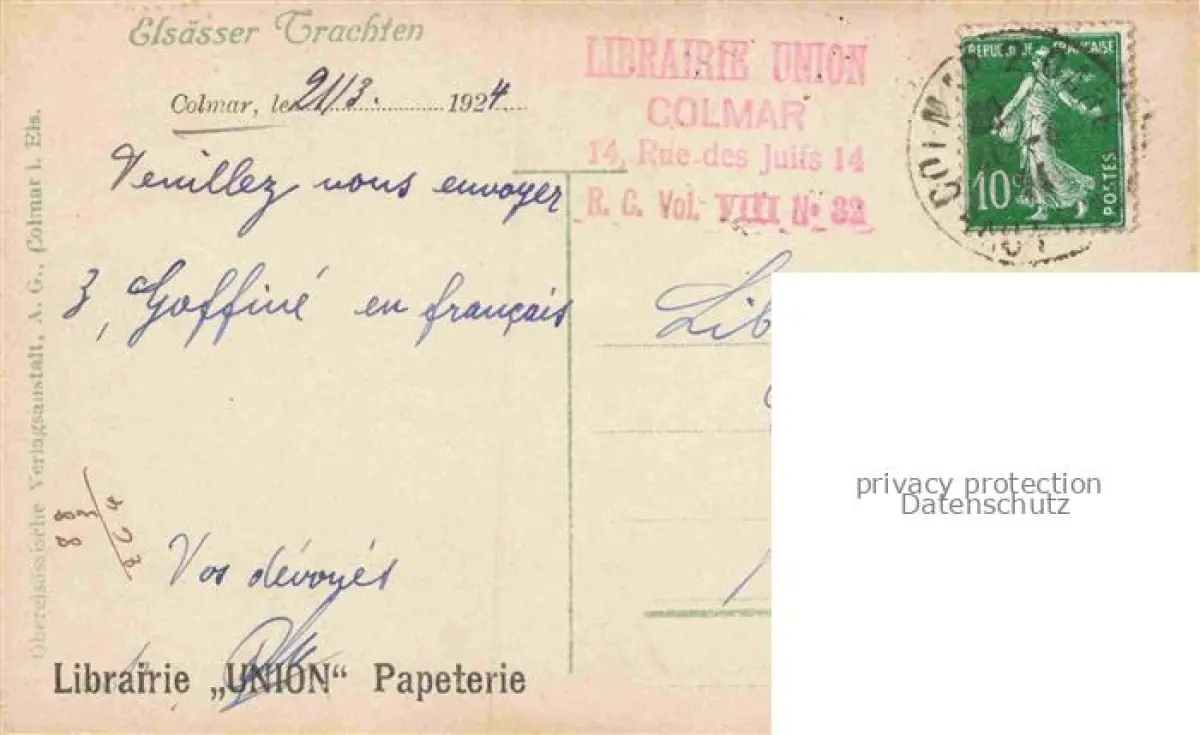 Elsässer Trachten
Colmar, le 21/3. 1924
Veuillez nous envoyer
3, Goffiné en français
Vos dévoués
Librairie „UNION“ Papeterie
Oberelsässische Verlagsanstalt, A. G., Colmar i. Els.
LIBRAIRIE UNION
COLMAR
14, Rue des Juifs 14
R. C. Vol. VIII No 32
REPUBLIQUE FRANÇAISE
10c
POSTES
COLMAR
Lib
privacy protection
Datenschutz